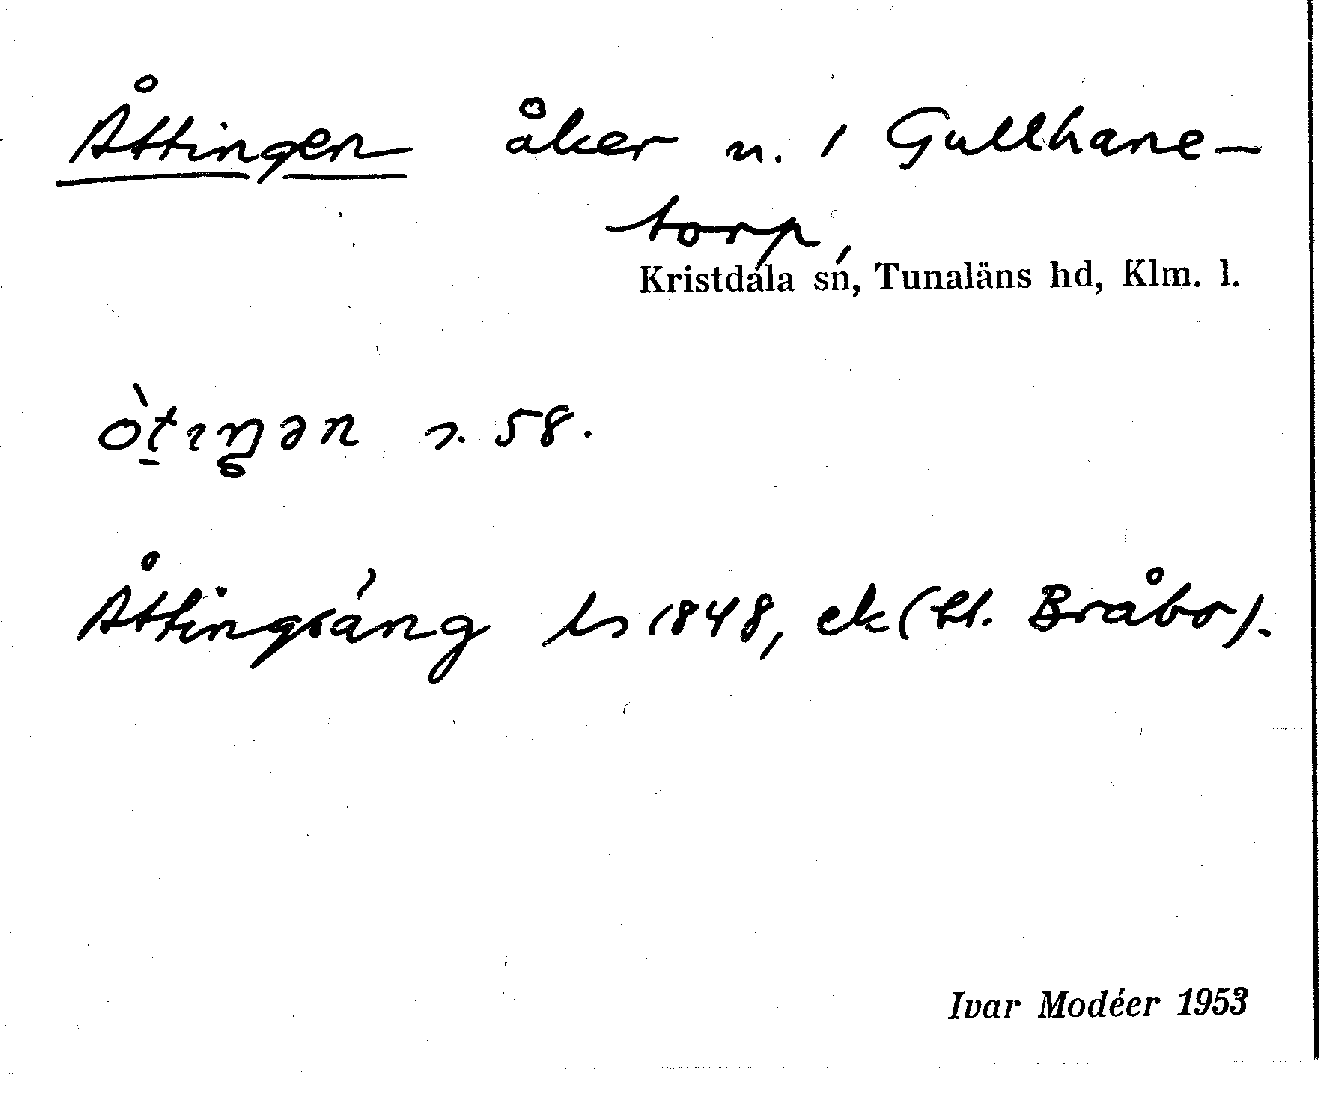 Åttingen åker n. 1 Gullhane-
torp,
Kristdala sn, Tunaläns hd, Klm. l.
òt̠ıŋən s. 58.
Åttingsäng ls 1848, ek (tl. Bråbo).
Ivar Modéer 1953